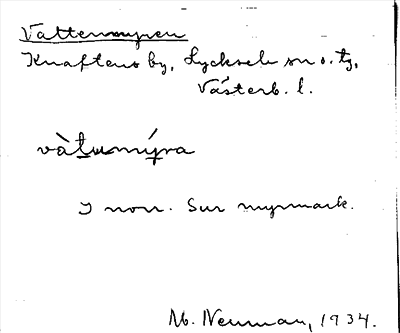 Vattenmyren
Knaftens by, Lycksele sn o. tg,
Västerb. l.
vàtumýra
I norr. Sur myrmark.
M. Neuman, 1934.